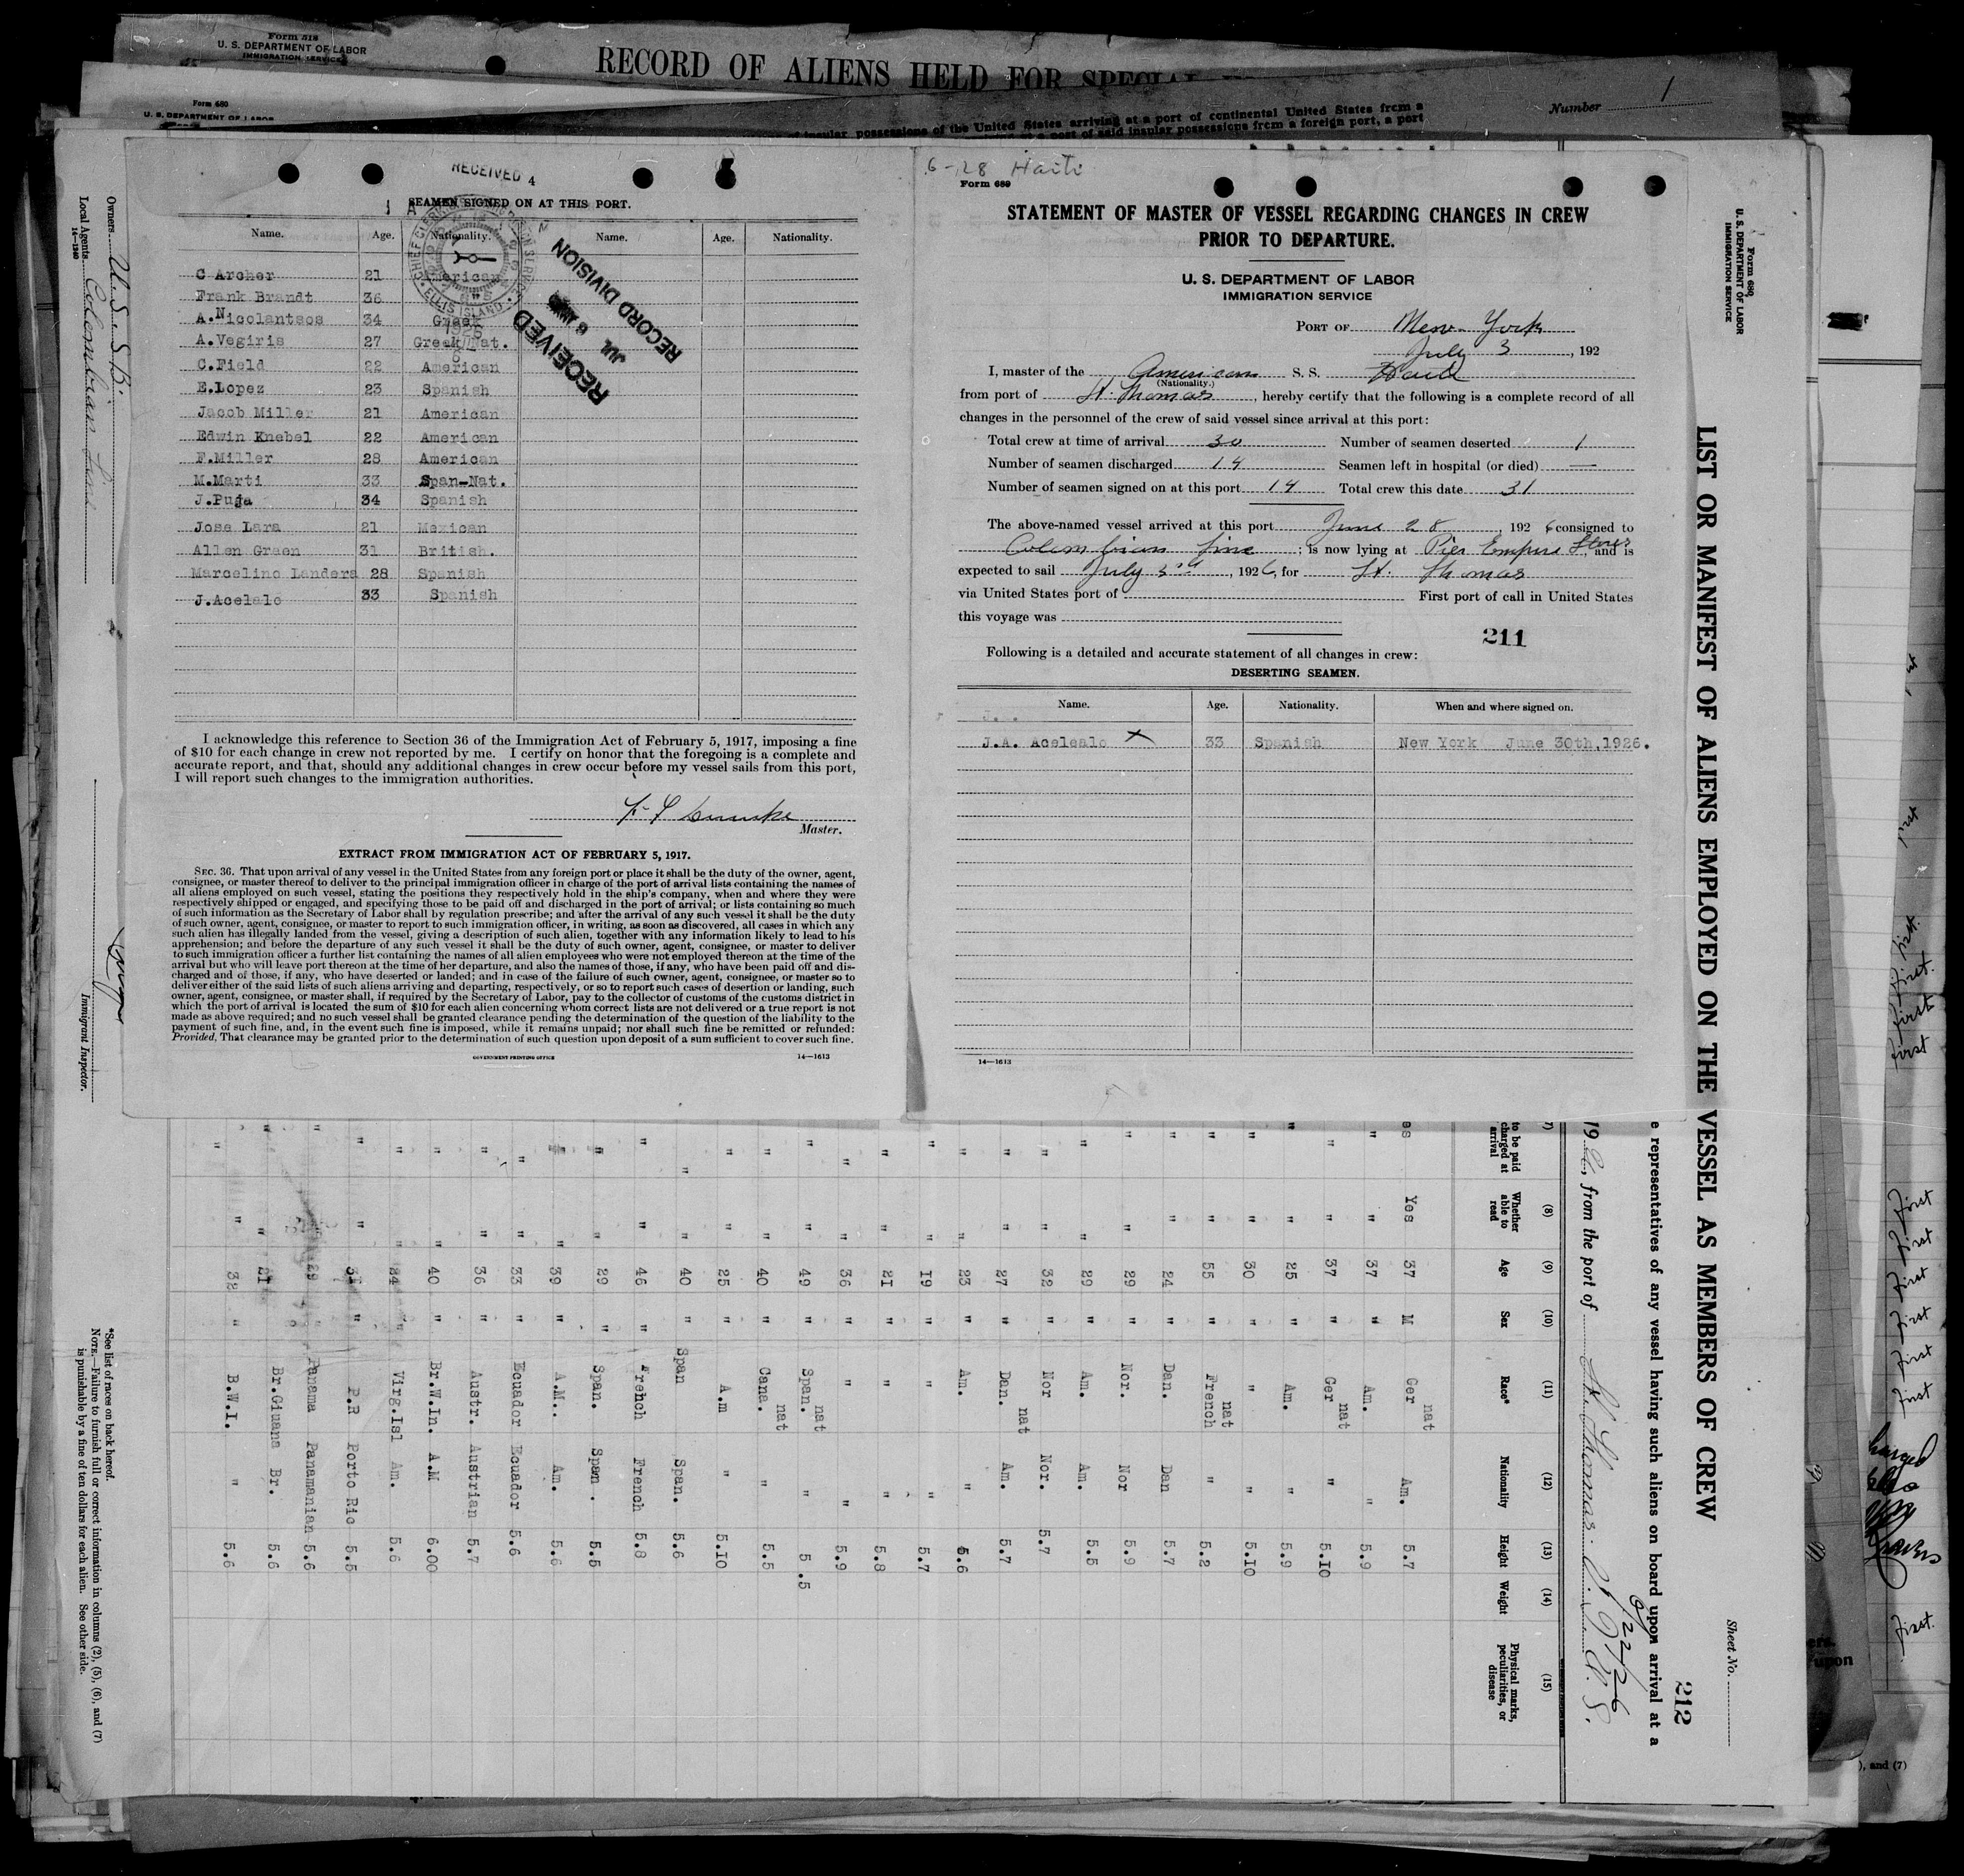 Form 518
U. S. DEPARTMENT OF LABOR
IMMIGRATION SERVICE
RECORD OF ALIENS HELD FOR SPECIAL
Form 680
U. S. DEPARTMENT OF LABOR
Number 1
of insular possessions of the United States arriving at a port of continental United States from a
at a port of said insular possessions from a foreign port, a port
RECEIVED 4
SEAMEN SIGNED ON AT THIS PORT.
Name. Age. Nationality. Name. Age. Nationality.
C Archer 21 American
Frank Brandt 36
A.Nicolantsos 34 Greek
A.Vegiris 27 Greek Nat.
C.Field 22 American
E.Lopez 23 Spanish
Jacob Miller 21 American
Edwin Knebel 22 American
F.Miller 28 American
M.Marti 33 Span-Nat.
J.Puja 34 Spanish
Jose Lara 21 Mexican
Allen Green 31 British.
Marcelino Landera 28 Spanish
J.Acelalo 33 Spanish
ELLIS ISLAND
1926
RECEIVED
JUL 6
RECORD DIVISION
I acknowledge this reference to Section 36 of the Immigration Act of February 5, 1917, imposing a fine
of $10 for each change in crew not reported by me. I certify on honor that the foregoing is a complete and
accurate report, and that, should any additional changes in crew occur before my vessel sails from this port,
I will report such changes to the immigration authorities.
Master.
EXTRACT FROM IMMIGRATION ACT OF FEBRUARY 5, 1917.
SEC. 36. That upon arrival of any vessel in the United States from any foreign port or place it shall be the duty of the owner, agent,
consignee, or master thereof to deliver to the principal immigration officer in charge of the port of arrival lists containing the names of
all aliens employed on such vessel, stating the positions they respectively hold in the ship's company, when and where they were
respectively shipped or engaged, and specifying those to be paid off and discharged in the port of arrival; or lists containing so much
of such information as the Secretary of Labor shall by regulation prescribe; and after the arrival of any such vessel it shall be the duty
of such owner, agent, consignee, or master to report to such immigration officer, in writing, as soon as discovered, all cases in which any
such alien has illegally landed from the vessel, giving a description of such alien, together with any information likely to lead to his
apprehension; and before the departure of any such vessel it shall be the duty of such owner, agent, consignee, or master to deliver
to such immigration officer a further list containing the names of all alien employees who were not employed thereon at the time of the
arrival but who will leave port thereon at the time of her departure, and also the names of those, if any, who have been paid off and dis-
charged and of those, if any, who have deserted or landed; and in case of the failure of such owner, agent, consignee, or master so to
deliver either of the said lists of such aliens arriving and departing, respectively, or so to report such cases of desertion or landing, such
owner, agent, consignee, or master shall, if required by the Secretary of Labor, pay to the collector of customs of the customs district in
which the port of arrival is located the sum of $10 for each alien concerning whom correct lists are not delivered or a true report is not
made as above required; and no such vessel shall be granted clearance pending the determination of the question of the liability to the
payment of such fine, and, in the event such fine is imposed, while it remains unpaid; nor shall such fine be remitted or refunded:
Provided, That clearance may be granted prior to the determination of such question upon deposit of a sum sufficient to cover such fine.
GOVERNMENT PRINTING OFFICE 14—1613
6-28 Haiti
Form 689
STATEMENT OF MASTER OF VESSEL REGARDING CHANGES IN CREW
PRIOR TO DEPARTURE.
U. S. DEPARTMENT OF LABOR
IMMIGRATION SERVICE
PORT OF New York
July 3, 192
I, master of the American S. S. Haiti
(Nationality.)
from port of St. Thomas, hereby certify that the following is a complete record of all
changes in the personnel of the crew of said vessel since arrival at this port:
Total crew at time of arrival 30 Number of seamen deserted 1
Number of seamen discharged 14 Seamen left in hospital (or died) —
Number of seamen signed on at this port 14 Total crew this date 31
The above-named vessel arrived at this port June 28, 1926 consigned to
Colombian Line; is now lying at Pier Empire Stores, and is
expected to sail July 3rd, 1926, for St. Thomas
via United States port of First port of call in United States
this voyage was
211
Following is a detailed and accurate statement of all changes in crew:
DESERTING SEAMEN.
Name. Age. Nationality. When and where signed on.
J.A. Acelealo X 33 Spanish New York June 30th,1926.
14—1613
Form 680
U. S. DEPARTMENT OF LABOR
IMMIGRATION SERVICE
LIST OR MANIFEST OF ALIENS EMPLOYED ON THE VESSEL AS MEMBERS OF CREW
Sheet No.
212
e representatives of any vessel having such aliens on board upon arrival at a
, from the port of St Thomas
(8) (9) (10) (11) (12) (13) (14) (15)
to be paid charged at arrival
Whether able to read
Age
Sex
Race*
Nationality
Height
Weight
Physical marks, peculiarities, or disease
es Yes 37 M Ger nat Am. 5.7
" " 37 " Am. " 5.9
" " 37 " Ger nat " 5.10
" " 25 " Am. " 5.9
" " 30 " " " 5.10
" " 55 " French nat " 5.2
" " 24 " Dan. Dan 5.7
" " 29 " Nor. Nor 5.9
" " 29 " Am. Am. 5.5
" " 32 " Nor Nor. 5.7
" " 27 " Dan. nat Am. 5.7
" " 23 " Am. " 5.6
" " 19 " " " 5.7
" " 21 " " " 5.8
" " 36 " " " 5.9
" " 49 " Span. nat " 5.5
" " 40 " Cana. nat " 5.5
" " 25 " A.m " 5.10
" " 40 " Span Span. 5.6
" " 46 " French French 5.8
" " 29 " Span. Span. 5.5
" " 39 " A.M.. Am. 5.6
" " 33 " Ecuador Ecuador 5.6
" " 36 " Austr. Austrian 5.7
" " 40 " Br.W.In. A.M 6.00
" " 24 " Virg.Isl Am. 5.6
" " 31 " P.R Porto Ric 5.5
" " 29 " Panama Panamanian 5.6
" " 21 Br.Giuana Br. 5.6
" " 32 " B.W.I. " 5.6
Owners U.S.S.B.
Local Agents Colombian Line
14—1240
Immigrant Inspector.
*See list of races on back hereof.
NOTE.—Failure to furnish full or correct information in columns (2), (5), (6), and (7)
is punishable by a fine of ten dollars for each alien. See other side.
first.
first
first
first
first
first
first
first
first
first
first.
upon
), and (7)